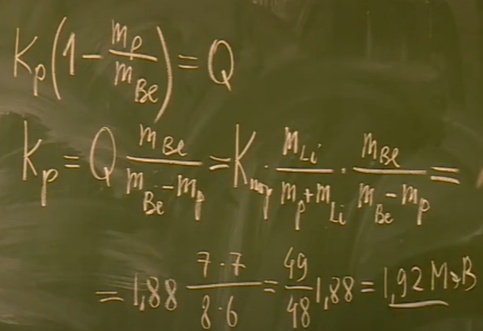 Kp(1 - mp/mBe) = Q
Kp = Q mBe/(mBe - mp) = Kпор · mLi/(mp + mLi) · mBe/(mBe - mp) =
= 1,88 7·7/8·6 = 49/48 1,88 = 1,92 МэВ